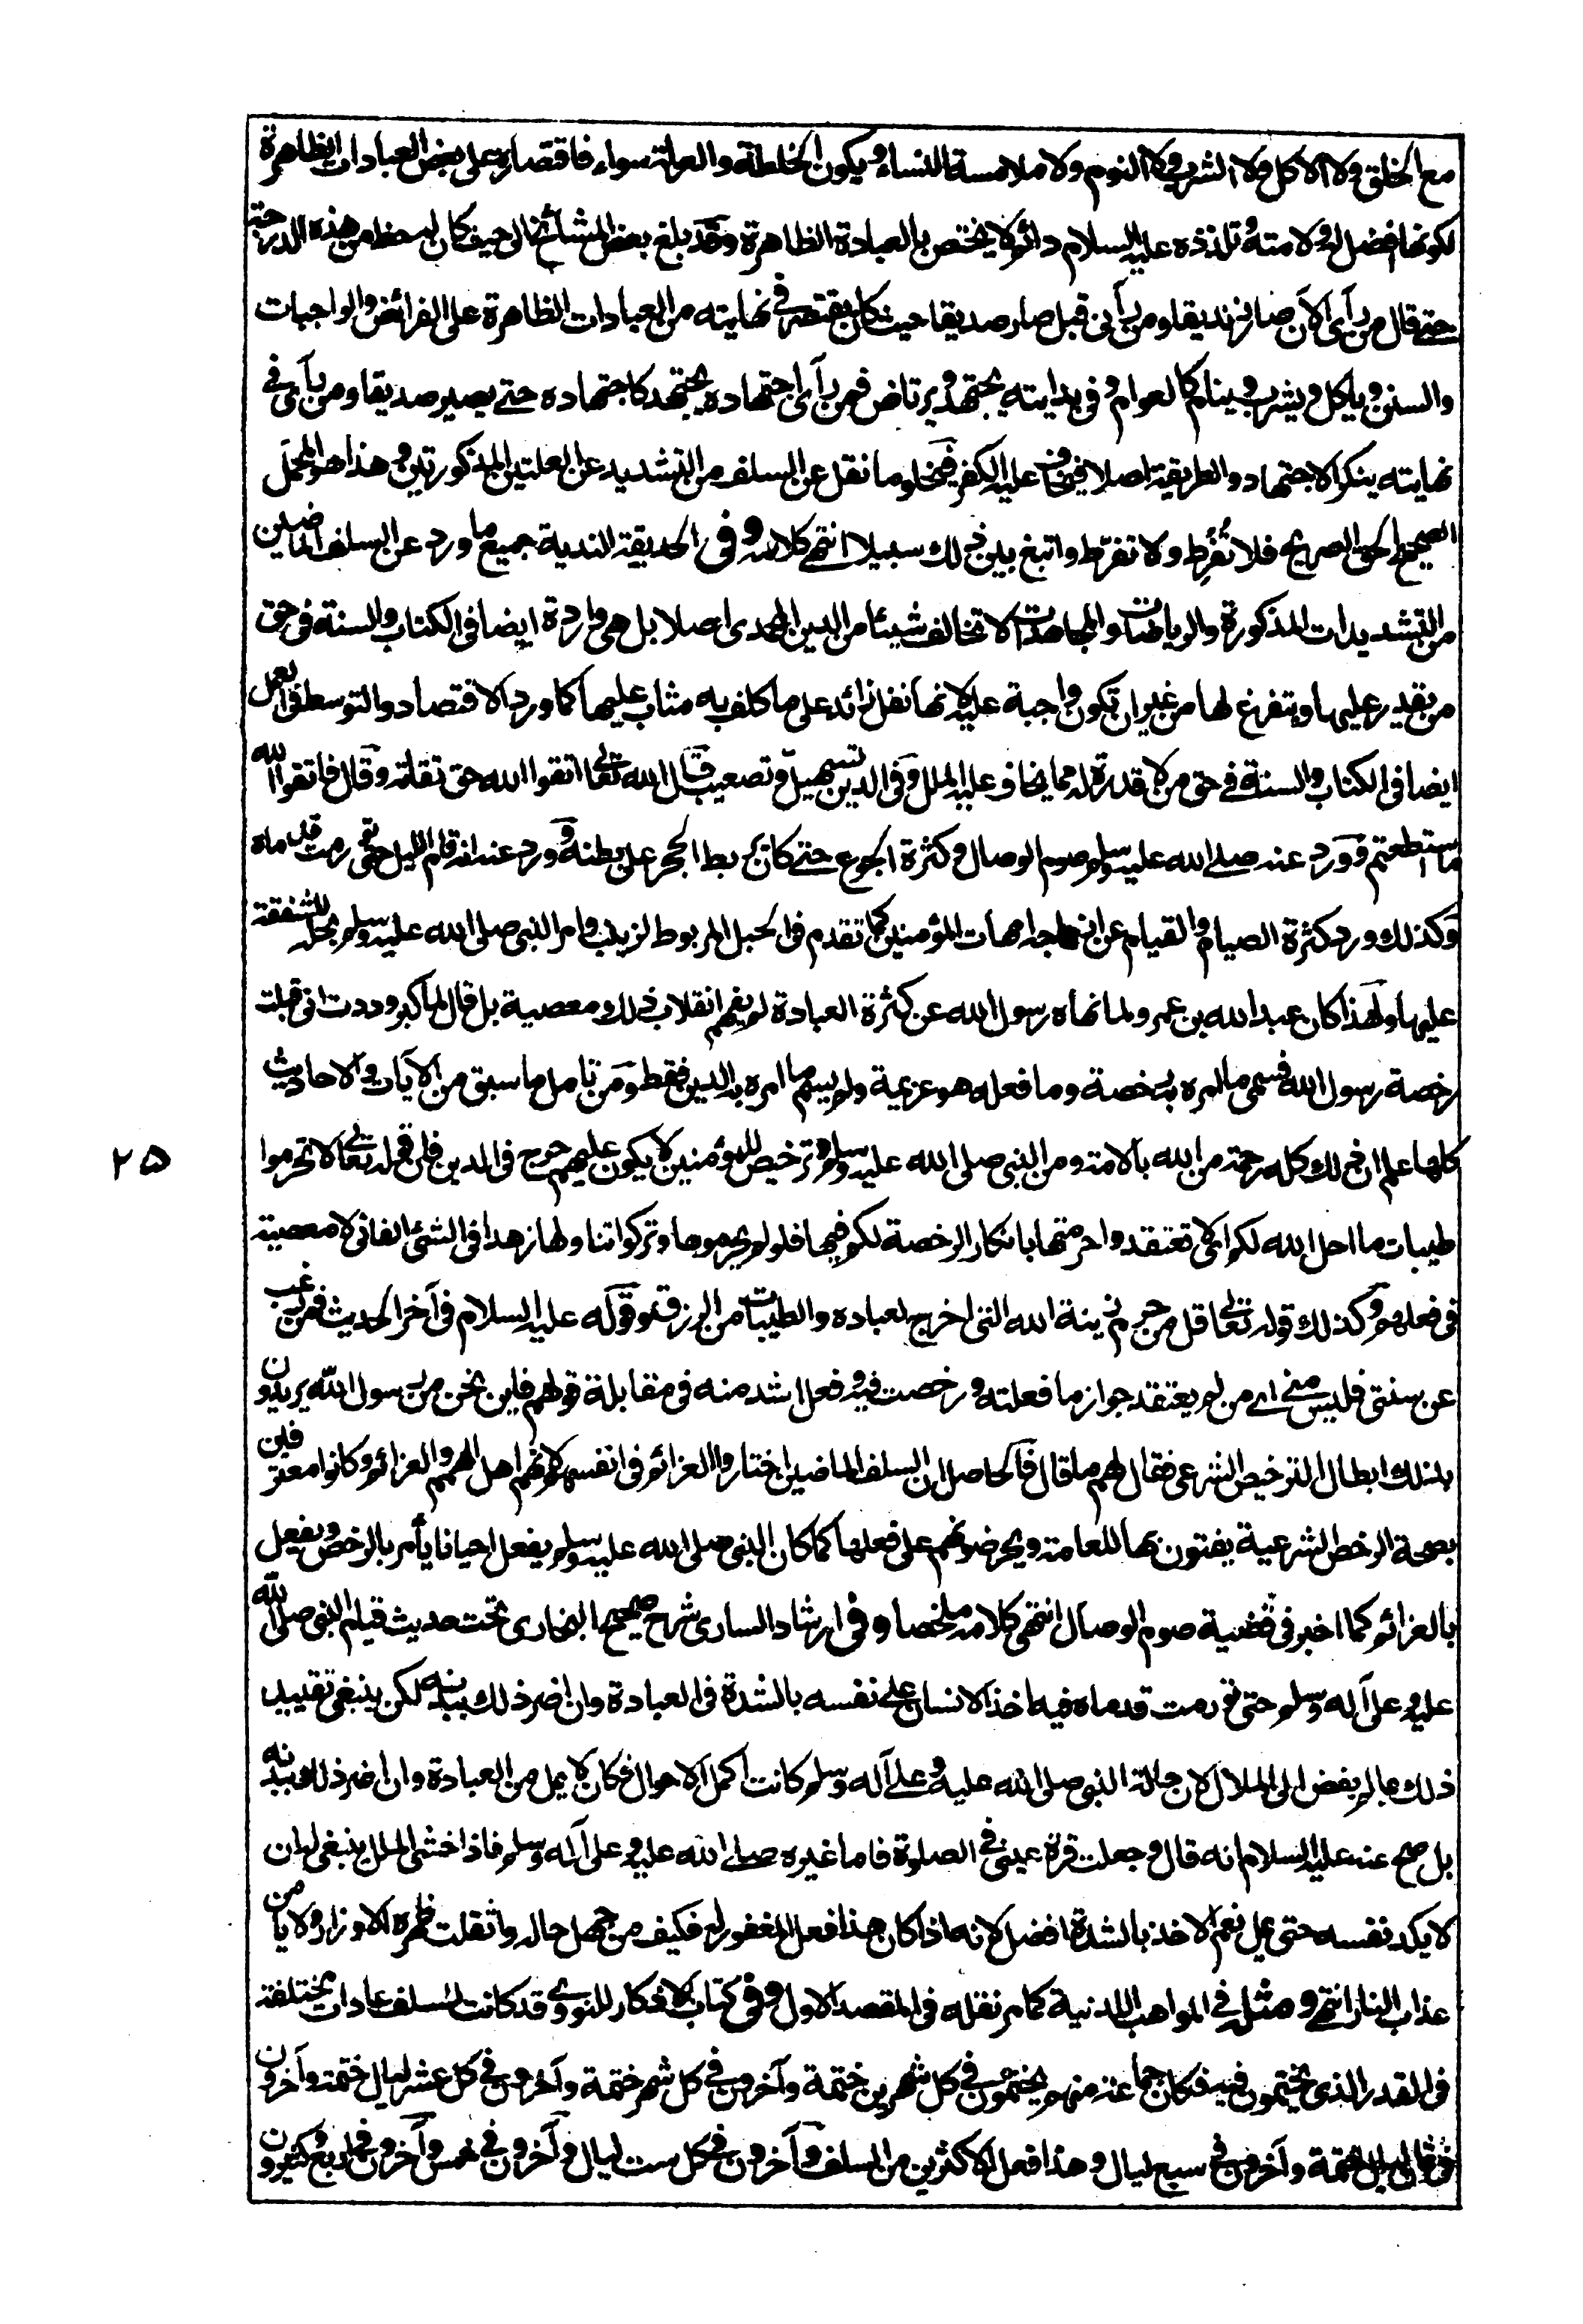 مع الخلق ولا الاكل ولا الشرب ولا النوم ولا ملامسة النساء ويكون الخلطة والعزلة سواء فاقتصاره على بعض العبادات الظاهرة
لكونها افضل له ولامته وتلذذه عليه السلام دائم لا يختص بالعبادة الظاهرة وقد بلغ بعض المشائخ الى حيث كان له حظ من هذه الدرجة
حتے قال من رآنى الآن صار زنديقا ومن رآنى قبل صار صديقا حيث كان يقتصر فے نهايته من العبادات الظاهرة على الفرائض والواجبات
والسنن وياكل ويشرب وينام كالعوام وفى بدايته يجتهد ويرتاض فمن رآى اجتهاده يجتهد كاجتهاده حتے يصير صديقا ومن رآى فے
نهايته ينكر الاجتهاد والطريقة اصلا فيخاف عليه الكفر فيخلو ما نقل عن السلف من التشديد عن العلتين المذكورتين وهذا هو المحمل
الصحيح الحق الصريح فلا تُفرِط ولا تفرّط وابتغ بين ذلك سبيلا انتهے كلامه وفى الحديقة الندية جميع ما ورد عن السلف الماضين
من التشديدات المذكورة والرياضات والمجاهدات لا تخالف شيئا من الدين المحمدى اصلا بل هى واردة ايضا فى الكتاب والسنة فى حق
من يقدر عليها ويتفرغ لها من غير ان تكون واجبة عليه لانها نفل زائد على ما كلف به مثاب عليها كما ورد الاقتصاد والتوسط فى العمل
ايضا فى الكتاب والسنة فے حق من لا قدرة له مما يخاف عليه الملل وفى الدين تسهيل وتصعيب قال الله تعالى اتقوا الله حق تقاته وقال فاتقوا الله
ما استطعتم وورد عنه صلے الله عليه وسلم صوم الوصال وكثرة الجوع حتے كان يربط الحجر على بطنه وورد عنه انه قام الليل حتى تورمت قدماه
وكذلك ورد كثرة الصيام والقيام عن ازواجه امهات المؤمنين كما تقدم فى الحبل المربوط لزينب وامر النبى صلى الله عليه وسلم بحله للشفقة
عليها ولهذا كان عبد الله بن عمرو لما نهاه رسول الله عن كثرة العبادة لم يفهم انقلاب ذلك معصية بل قال لما كبر وددت انى قبلت
رخصة رسول الله فسمى ما امره به رخصة وما فعله هو عزيمة ولم يسم ما امره به الدين فقط ومن تامل ما سبق من الآيات والاحاديث
كلها علم ان ذلك كله رحمة من الله بالامة ومن النبى صلى الله عليه وسلم وترخيص للمؤمنين لا يكون عليهم حرج فى الدين فان قوله تعالى لا تحرموا
طيبات ما احل الله لكم اى لا تعتقدوا حرمتها بانكار الرخصة لكم فيها فلو لم يحرموها وتركوا تناولها زهدا فى الشئ الفانى لا معصية
فى فعلهم وكذلك قوله تعالى قل من حرم زينة الله التى اخرج لعباده والطيبات من الرزق وقوله عليه السلام فى آخر الحديث فمن رغب
عن سنتى فليس منے اے من لم يعتقد جواز ما فعلته ورخصت فيه وفعل اشد منه فى مقابلة قولهم فاين نحن من رسول الله يريدون
بذلك ابطال الترخيص الشرعى فقال لهم ما قال فالحاصل ان السلف الماضين اختاروا العزائم فى انفسهم لانهم اهل الهمم والعزائم وكانوا معترفين
بصحة الرخص الشرعية يفتون بها للعامة ويحرضونهم على فعلها كما كان النبى صلى الله عليه وسلم يفعل احيانا يأمر بالرخص ويفعل
بالعزائم كما اخبر فى قضية صوم الوصال انتهى كلامه ملخصا وفى ارشاد السارى شرح صحيح البخارى تحت حديث قيام النبى صلى الله
عليه وعلى آله وسلم حتى تورمت قدماه فيه اخذ الانسان على نفسه بالشدة فى العبادة وان اضر ذلك ببدنه لكن ينبغى تقييد
ذلك بما لم يفض الى الملال لان حالة النبى صلى الله عليه وعلے آله وسلم كانت اكمل الاحوال فكان لا يمل من العبادة وان اضر ذلك ببدنه
بل صح عنه عليه السلام انه قال وجعلت قرة عينى فے الصلوة فاما غيره صلے الله عليه وعلى آله وسلم فاذا خشى الملل ينبغى له ان
لا يكد نفسه حتى يمل نعم الاخذ بالشدة افضل لانه اذا كان هذا فعل المغفور له فكيف من جهل حاله واثقلت ظهره الاوزار ولا يأمن
عذاب النار انتهے ومثله فے المواهب اللدنية كما مر نقله فى المقصد الاول وفى كتاب الاذكار للنووے وقد كانت للسلف عادات مختلفة
فى القدر الذى يختمون فيه فكان جماعة منهم يختمون فے كل شهرين ختمة وآخرون فے كل شهر ختمة وآخرون فے كل عشر ليال ختمة وآخرون
فى ثمان ليال ختمة وآخرون فے سبع ليال وهذا فعل الاكثرين من السلف وآخرون فے كل ست ليال وآخرون فے خمس وآخرون فے اربع وكثيرون
٢٥